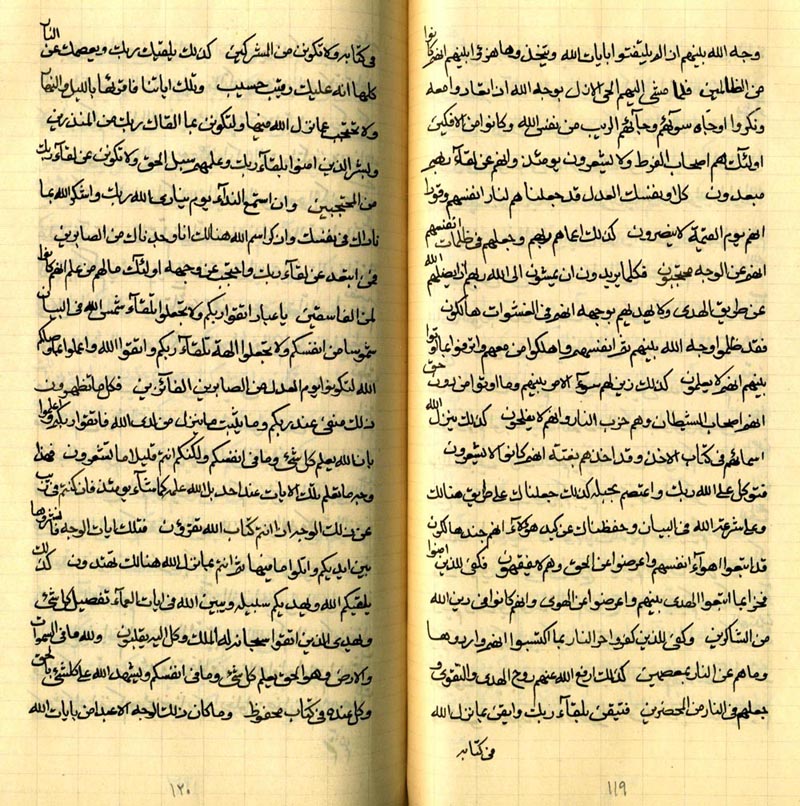 وجه الله بينهم ان الذين يلتفتوا بايات الله ويتخذوها هزؤا بينهم انهم كانوا
من الظالمين فلما مضى اليهم الحق الاول بوجه الله ان اتعاروا معه
وتكروا اوجاه سوآتهم وجآئهم الريب من نفس الله وكانوا من الافكين
اولئك هم اصحاب القوط ولا يشعرون يومئذ وانهم عن لقآء ربهم
مبعدون كلا ونفسك العدل قد جعلنا هم لنار انفسهم وقودا
انهم يوم القيمة لا يبصرون كذلك اعماهم ربهم وجعلهم فى ظلمات انفسهم
انهم عن الوجه محتجبون فكلما يريدون ان يمشون الى الله ربهم ان يضلهم الله
عن طريق الهدى وكلا يهديهم بوجهه انهم فى الغشوات هالكون
فقد ظلموا وجه الله بينهم ثم انفسهم واهلكوا من معهم واترفوا بما اوتوا
بينهم انهم لا يعلمون كذلك زين لهم سوء الامر بينهم وما اوتوا من دون حق
انهم اصحاب الشيطان وهم حزب النار وانهم لا يفلحون كذلك ينزل الله
اسمائهم فى كتاب الاخذ وقد اخذهم بغتة انهم كانوا لا يشعرون
فتوكل على الله ربك واعتصم بحبله كذلك جعلناك على طريق هنالك
وعلى شرعة الله فى البيان وحفظناك عن كيد هؤلآء انهم جند هالكون
قد اتبعوا اهوآء انفسهم واعرضوا عن الحق وهم لا يفقهون فكفى للذين امنوا
فخرا بما اتبعوا الهدى بينهم واعرضوا عن الهوى وانهم كانوا فى دين الله
من الشاكرين وكفى للذين كفروا حر النار بما اكتسبوا انهم واردوها
وما هم عن النار بمعصمين كذلك رفع الله عنهم روح الهدى والتقوى و
جعلهم فى النار من المحضرين فتيقن بلقآء ربك وايقن بما نزل الله
فى كتابه
١١٩
فى كتابه ولا تكونن من المشركين كذلك يلقيك ربك ويعصمك عن النار
كلها انه عليك رقيب حسيب وتلك اياتنا فاقرئها بالليل والنهار
ولا تحتجب عما نزل الله فيها ولتكونن بما القاك ربك من المنذرين
وبشر الذين امنوا بلقآء ربك وعلمهم سبل الحق ولا تكونن عن لقآء ربك
من المحتجبين وان استمع الندآء يوم ينادى الله ربك واشكر الله بما
ناداك فى نفسك وان ذكر اسم الله هنالك انا وجدناك من الصابرين
فمن ابتعد عن لقآء ربك واحتجب عن وجهه اولئك مالهم من علم انهم كانوا
لمن الفاسقين يا عباد اتقوا ربكم ولا تجعلوا بلقآء شمس الله فى البيان
شموسا من انفسكم ولا تجعلوا الهة تلقآء ربكم واتقوا الله واعملوا بما وصيكم
الله لتكونوا يوم العدل من الصابرين الفائزين فكل ما تظهرون
ذلك منفى عند ربكم وما يثبت ما ينزل من لدى الله فاتقوا ربكم واعلموا
بان الله يعلم كل شئ وما فى انفسكم ولكنكم انتم قليلا ما تشعرون فهذا
وجه ما تقلم بتلك الايات عند احد بلا الله علمه كما شآء يومئذ فان كنتم فى ريب
عن ذلك الوجه ان انتم كتاب الله تقرؤن فتلك ايات الوجه فانشروها
بين ايديكم وابكوا ما فيها ثم انتم بما نزل الله هنالك تهتدون كذلك
يلقيكم الله ويهديكم سبيله ويبين الله فى ايات العمآء تفصيل كل شئ
ويهدى الذين اتقوا سبحانه له الملك وكل اليه يقلبون ولله ما فى السموات
والارض وهو الحق يعلم كل شئ وما فى انفسكم ويشهد الله على كلشئ بالحق
وكل عنده فى كتاب محفوظ وما كان ذلك الوجه الا عبد امن بايات الله
١٢٠